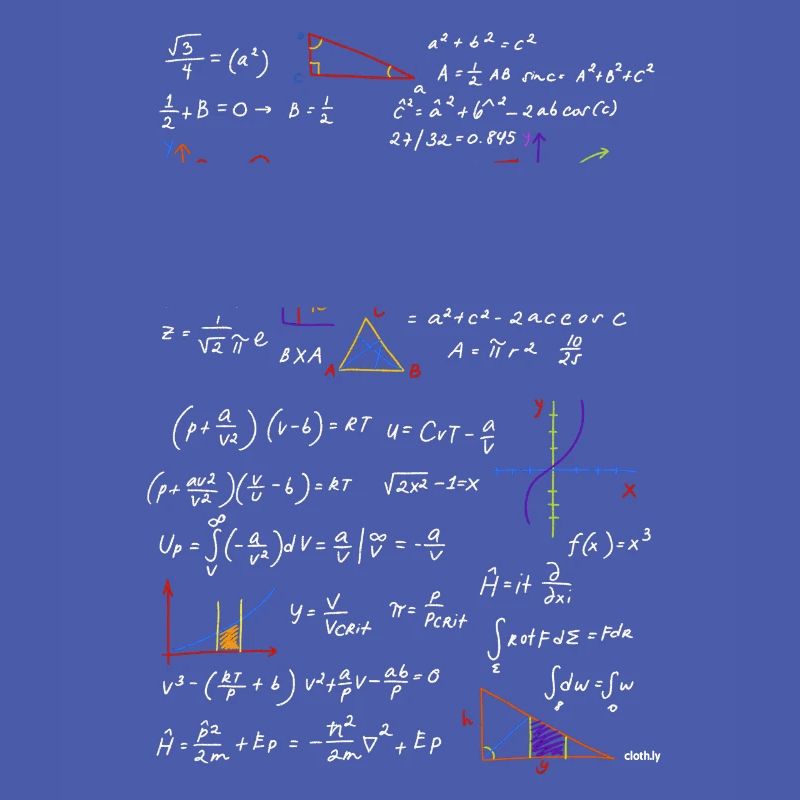 √3/4 = (a²)
a² + b² = c²
A = 1/2 AB sinc = A²+B²+C²
a
c
1/2 + B = 0 → B = 1/2
ĉ² = â² + b^² - 2ab cos(c)
27/32 = 0.845
y
y
z = 1/√2 π e
B X A
A
B
= a²+c² - 2aceos C
A = π r 2 10/25
(p + a/v2) (v-b) = RT
u = CvT - a/v
y
x
(p + av2/v2)(v/u - b) = RT
√2x² - 1 = x
Up = ∫ ∞ v (-a/v2) dV = a/v | ∞ v = - a/v
f(x) = x³
Ĥ = it ∂/∂xi
y = V/VCRit
π = P/PCRit
∫ Σ Rot F dΣ = FdR
v³ - (RT/P + b) v² + a/p v - ab/p = 0
∫ dw = ∫ w
Ĥ = p̂2/2m + Ep = - ħ²/2m ∇² + Ep
h
y
cloth.ly